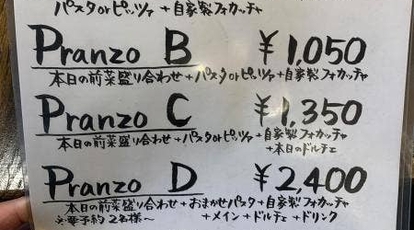 パスタorピッツァ + 自家製フォカッチャ
Pranzo B ¥1,050
本日の前菜盛り合わせ + パスタorピッツァ + 自家製フォカッチャ
Pranzo C ¥1,350
本日の前菜盛り合わせ + パスタorピッツァ + 自家製フォカッチャ
+ 本日のドルチェ
Pranzo D ¥2,400
本日の前菜盛り合わせ + おまかせパスタ + 自家製フォカッチャ
※要予約2名様〜 + メイン + ドルチェ + ドリンク